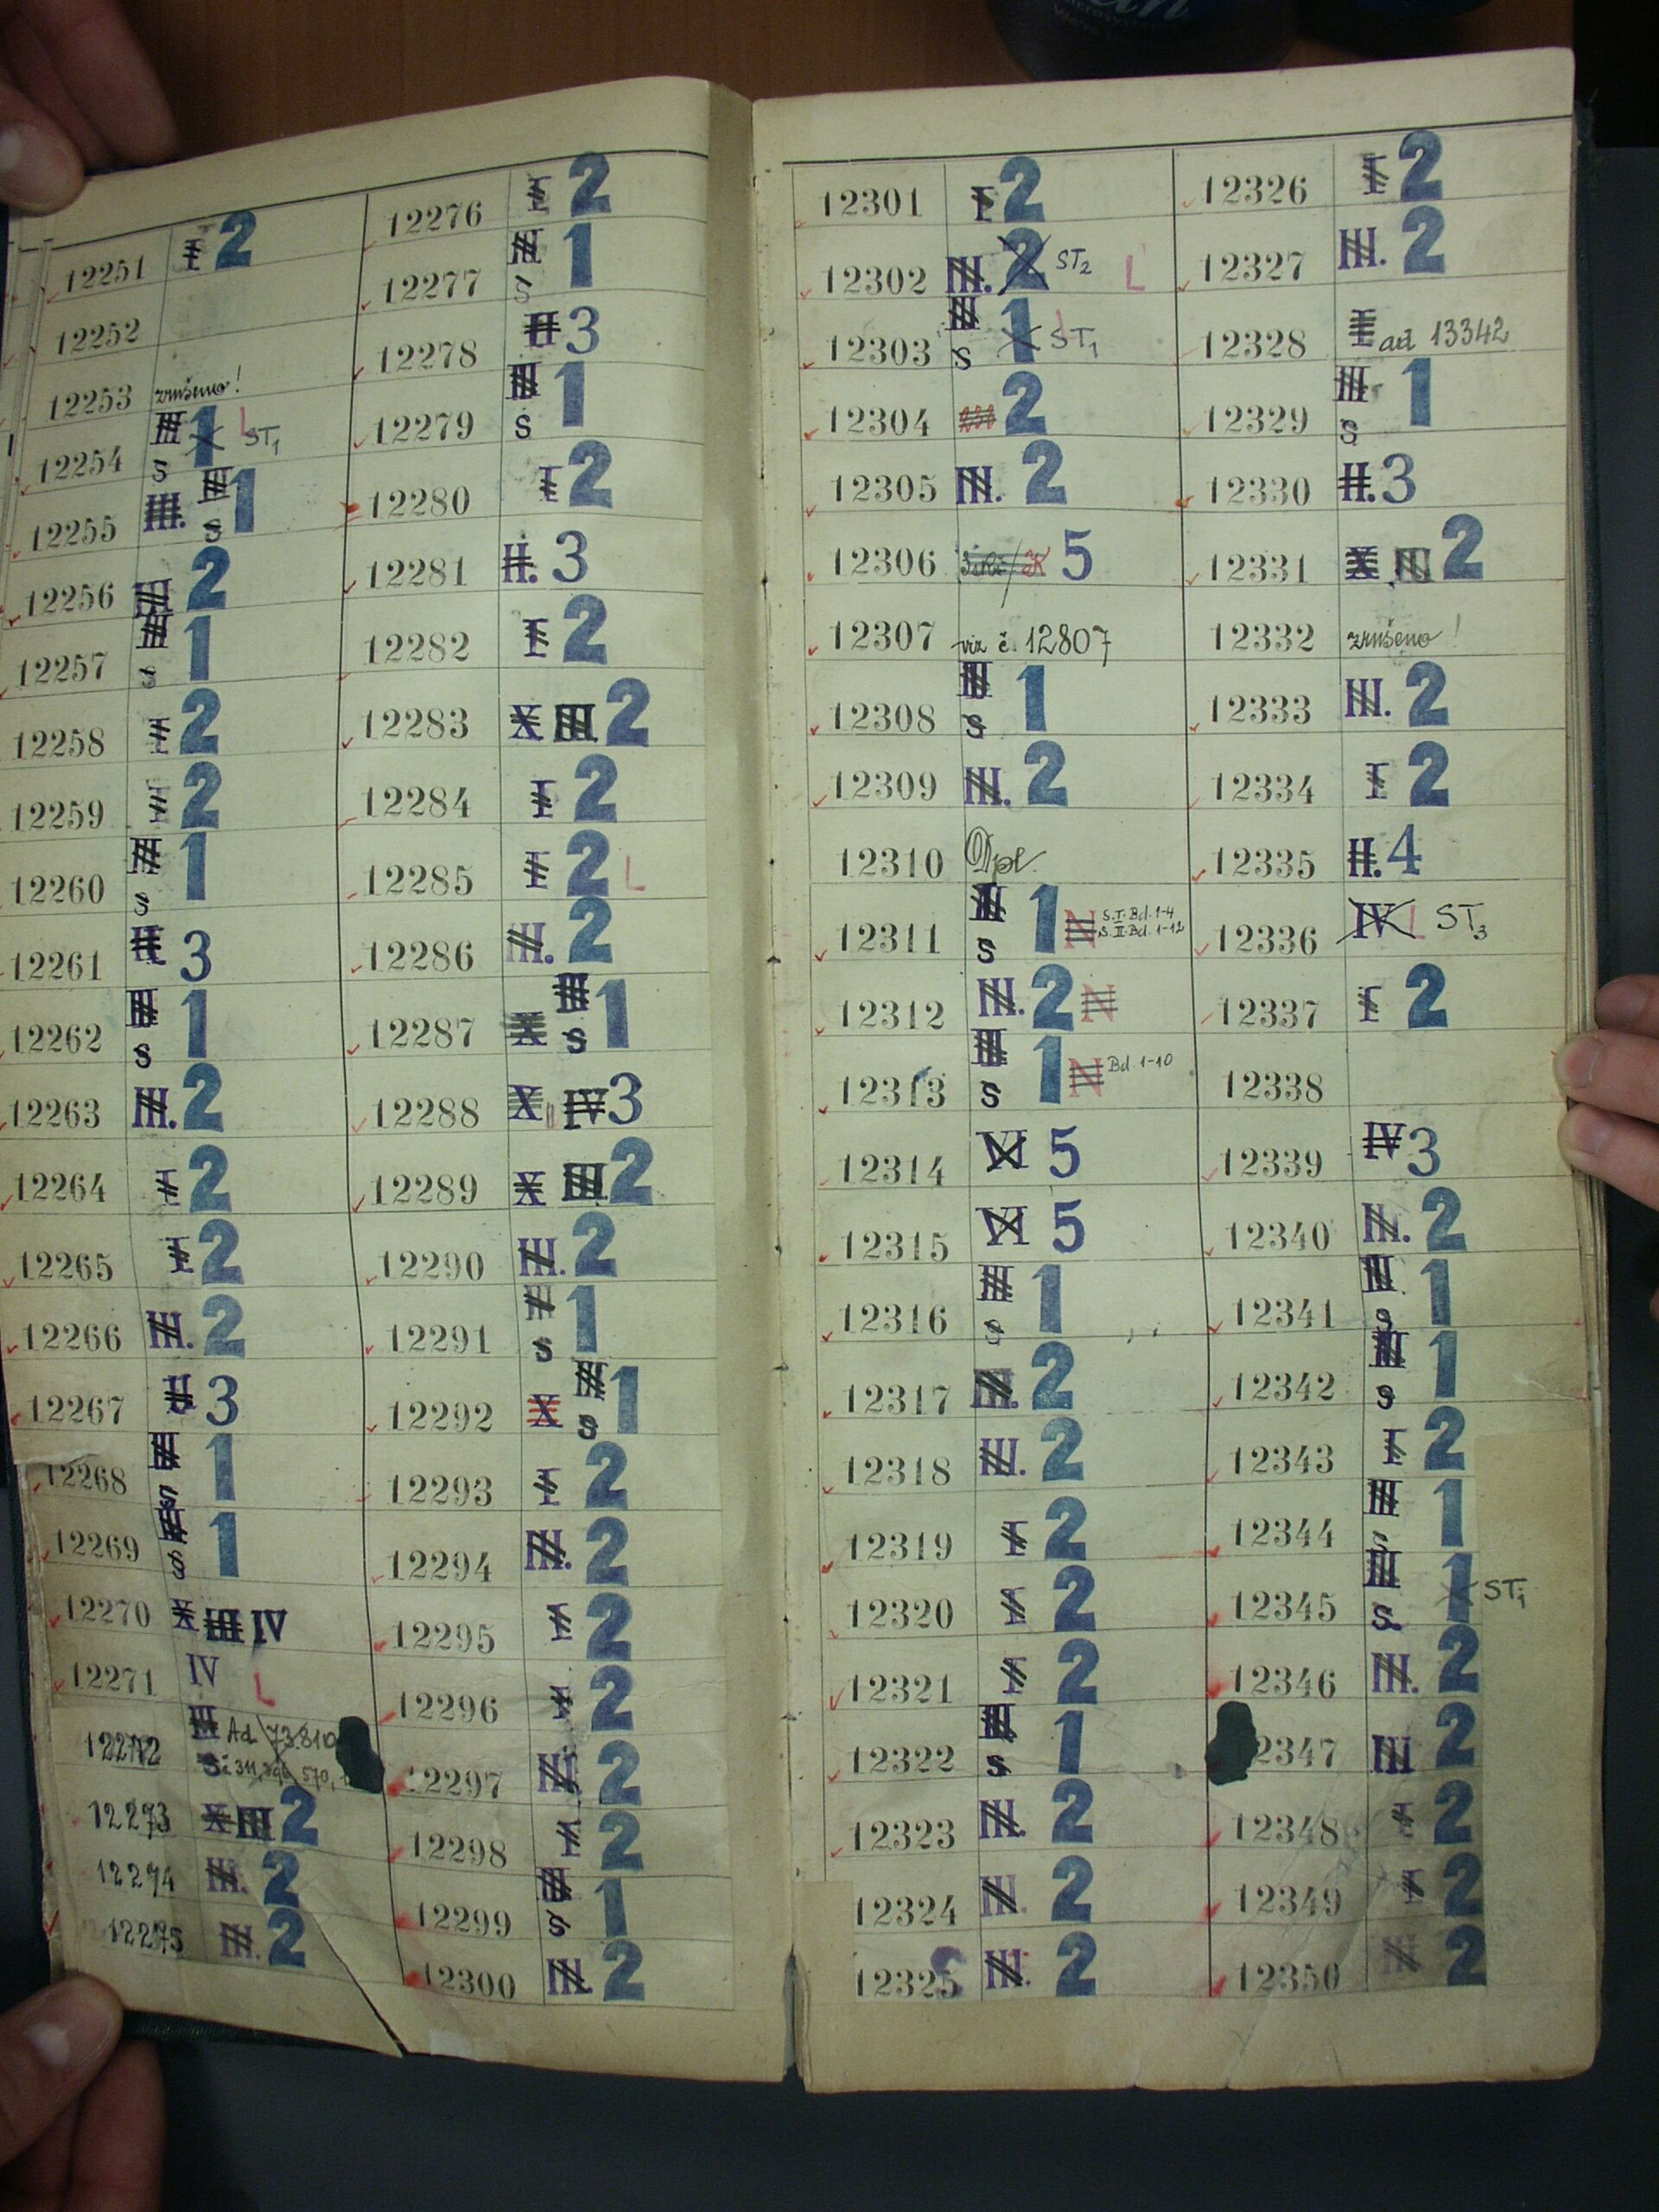 12251 I 2
12252
12253 zrušeno!
12254 III S 1 L ST1
12255 III. III S 1
12256 III 2
12257 III S 1
12258 I 2
12259 I 2
12260 III S 1
12261 II 3
12262 III S 1
12263 III. 2
12264 I 2
12265 I 2
12266 III. 2
12267 II 3
12268 III S 1
12269 III S 1
12270 X III IV
12271 IV L
12272 III Ad 73.810
S
12273 X III 2
12274 III. 2
12275 III. 2
12276 I 2
12277 III S 1
12278 II 3
12279 III S 1
12280 I 2
12281 II. 3
12282 I 2
12283 X III 2
12284 I 2
12285 I 2 L
12286 III. 2
12287 X III S 1
12288 X IV 3
12289 X III 2
12290 III. 2
12291 III S 1
12292 X III S 1
12293 I 2
12294 III. 2
12295 I 2
12296 I 2
12297 III 2
12298 I 2
12299 III S 1
12300 III. 2
12301 I 2
12302 III. 2 ST2 L
12303 III S 1 L ST1
12304 2
12305 III. 2
12306 5
12307 viz č. 12807
12308 III S 1
12309 III. 2
12310 Dpl.
12311 III S 1 N S.I.Bd.1-4
S.II.Bd.1-12
12312 III. 2 N
12313 III S 1 N Bd.1-10
12314 VI 5
12315 VI 5
12316 III S 1
12317 III. 2
12318 III. 2
12319 I 2
12320 I 2
12321 I 2
12322 III S 1
12323 III. 2
12324 III. 2
12325 III. 2
12326 I 2
12327 III. 2
12328 I ad 13342
12329 III S 1
12330 II. 3
12331 X III 2
12332 zrušeno!
12333 III. 2
12334 I 2
12335 II. 4
12336 IV L ST3
12337 I 2
12338
12339 IV 3
12340 III. 2
12341 III S 1
12342 III S 1
12343 I 2
12344 III S 1
12345 III S 1 ST1
12346 III. 2
2347 III 2
12348 I 2
12349 I 2
12350 III 2